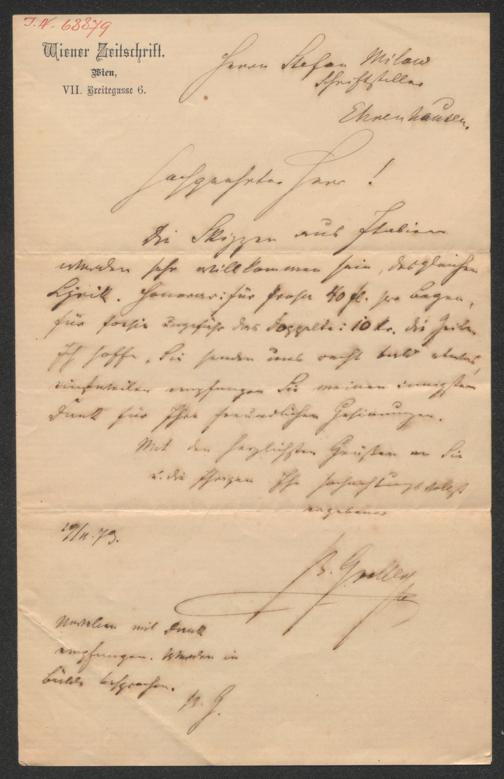 I.N. 63379
Wiener Zeitschrift.
Wien,
VII. Breitegasse 6.
Herrn Stefan Milow
Schriftsteller
Ehrenhausen.
Hochgeehrter Herr!
Die Skizzen aus Italien
werden sehr willkommen sein, desgleichen
Lyrik. Honorar: für Prosa 40 fl. pro Bogen,
für Poesie ungefähr das Doppelte: 10 kr. die Zeile.
Ich hoffe, Sie senden uns recht bald etwas,
einstweilen empfangen Sie meinen innigsten
Dank für Ihre freundlichen Gesinnungen.
Mit den herzlichsten Grüßen an Sie
u. die Ihrigen Ihr hochachtungsvollst
ergebener
B. Groller
Novellen mit Dank
empfangen. Werden in
Bälde besprochen.
B. G.